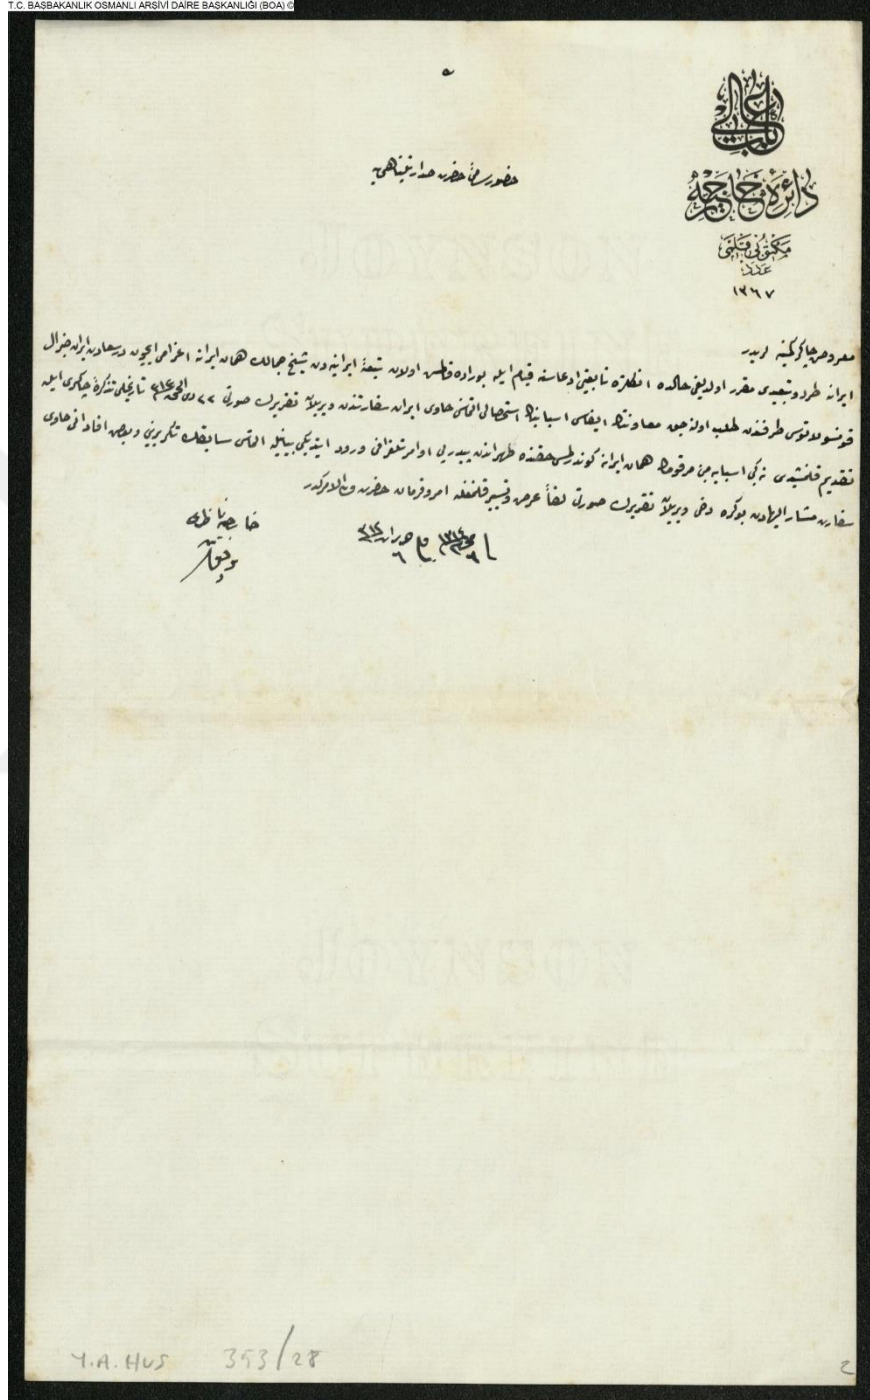 T.C. BAŞBAKANLIK OSMANLI ARŞİVİ DAİRE BAŞKANLIĞI (BOA) ©
باب عالی
دائرهٔ خارجیه
مکتوبی قلمی
عدد
١٣٦٧
حضور سامئ حضرت صدارتپناهی یه
معروض چاکر کمینه لریدر
ایرانه طرد و تبعیدی مقرر اولدیغی حالده انکلتره تابعیتی ادعاسنه قیام ایله بوراده قالمش اولان تبعهٔ ایرانیه دن شیخ جمالک همان ایرانه اعزامی ایچون درسعادت ایران جنرال
قونسولاتوسی طرفندن طلب اولنه جق معاونتک ایفاسی اسبابنک استحصالی التماسنی حاوی ایران سفارتندن ویریلان تقریرک صورتی ٢٢ ذی الحجه ٣١٣ تاریخلی تذکرهٔ چاکری ایله
تقدیم قلنمشیدی مرقومک همان ایرانه کوندرلمسی حقنده طهراندن پیدرپی اوامر تلغرافی ورود ایتدیکی بیانیله التماس سابقک تکریرینی و بعض افاداتی حاوی
سفارت مشار الیهادن بو کره دخی ویریلان تقریرک صورتی لفاً عرض و تسییر قلنمغله امر و فرمان حضرت من له الامرکدر
فی ٦ محرم ٣١٤ و فی ٦ حزیران ٣١٢
خارجیه ناظری
توفیق
Y.A.HUS 353/28
2